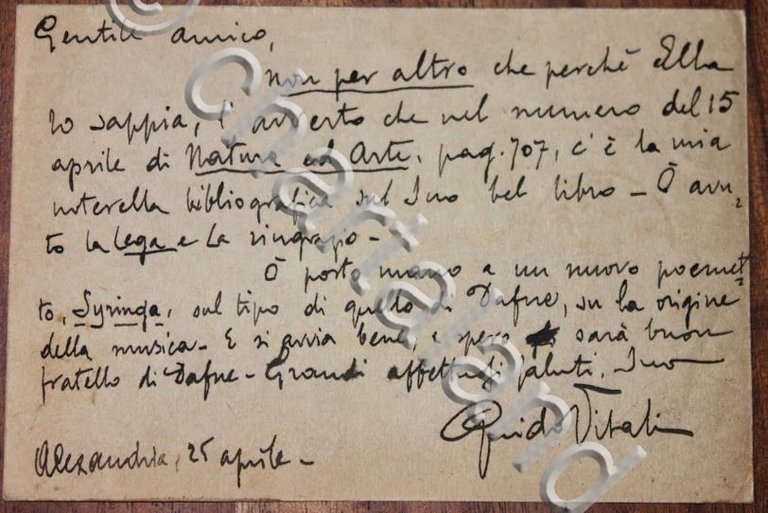 Gentile amico,
non per altro che perchè Ella
lo sappia, l'avverto che nel numero del 15
aprile di Natura ed Arte, pag. 707, c'è la mia
noterella bibliografica sul Suo bel libro – Ò avu=
to la Lega e La ringrazio –
Ò posto mano a un nuovo poemet=
to, Syringa, sul tipo di quello di Dafne, su la origine
della musica – E si avvia bene, e spero sarà buon
fratello di Dafne – Grandi affettuosi saluti. Suo
Guido Vitali
Alexandria, 25 aprile –
chartaland